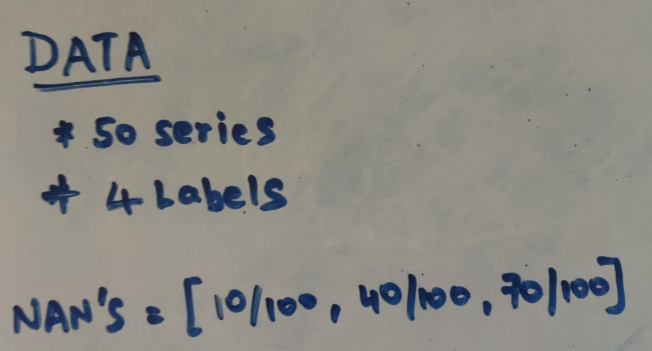 DATA
* 50 series
* 4 Labels
NAN'S = [10/100, 40/100, 70/100]